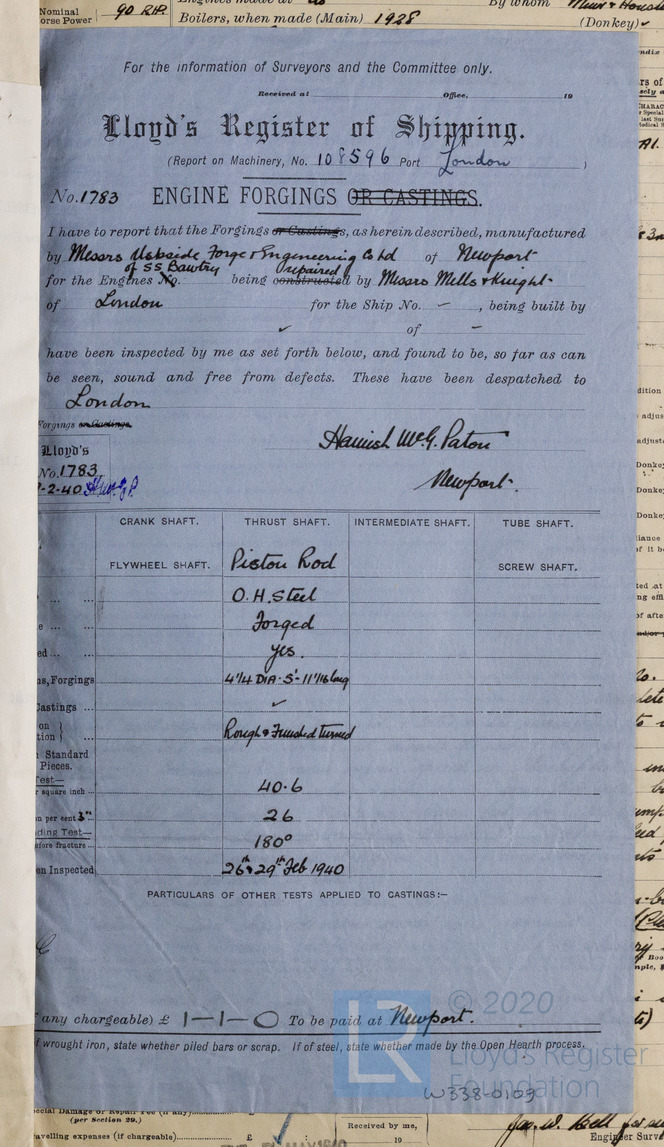 Nominal
orse Power 90 RHP.
Boilers, when made (Main) 1928
By whom
(Donkey)
For the information of Surveyors and the Committee only.
Received at Office, 19
Lloyd's Register of Shipping.
(Report on Machinery, No. 108596 Port London )
No. 1783 ENGINE FORGINGS OR CASTINGS.
I have to report that the Forgings or Castings, as herein described, manufactured
by Messrs Uskside Forge & Engineering Co Ltd of Newport
of SS Bawtry repaired
for the Engines No. being constructed by Messrs Mells & Knight
of London for the Ship No. – , being built by
✓ of –
have been inspected by me as set forth below, and found to be, so far as can
be seen, sound and free from defects. These have been despatched to
London
Forgings or Castings
Hamish McG. Paton
Lloyd's
No. 1783
-2-40 H.McG.P.
Newport.
CRANK SHAFT. THRUST SHAFT. INTERMEDIATE SHAFT. TUBE SHAFT.
FLYWHEEL SHAFT. Piston Rod SCREW SHAFT.
... ... O.H. Steel
e ... ... Forged
ed ... ... yes.
ns, Forgings 4 1/4 DIA - 5'-11 1/16 long
Castings ... ✓
on }
tion } ... Rough & Finished turned
Standard
Pieces.
Test—
r square inch ... 40.6
n per cent 3" 26
ding Test—
efore fracture ... 180°
en Inspected 26th & 29th Feb 1940
PARTICULARS OF OTHER TESTS APPLIED TO CASTINGS:—
any chargeable) £ 1—1—0 To be paid at Newport.
f wrought iron, state whether piled bars or scrap. If of steel, state whether made by the Open Hearth process.
© 2020
Lloyd's Register
Foundation
W338-0109
pecial Damage or Repair Fee (if any)
(per Section 29.)
ravelling expenses (if chargeable) £
Received by me,
19
Engineer Surv